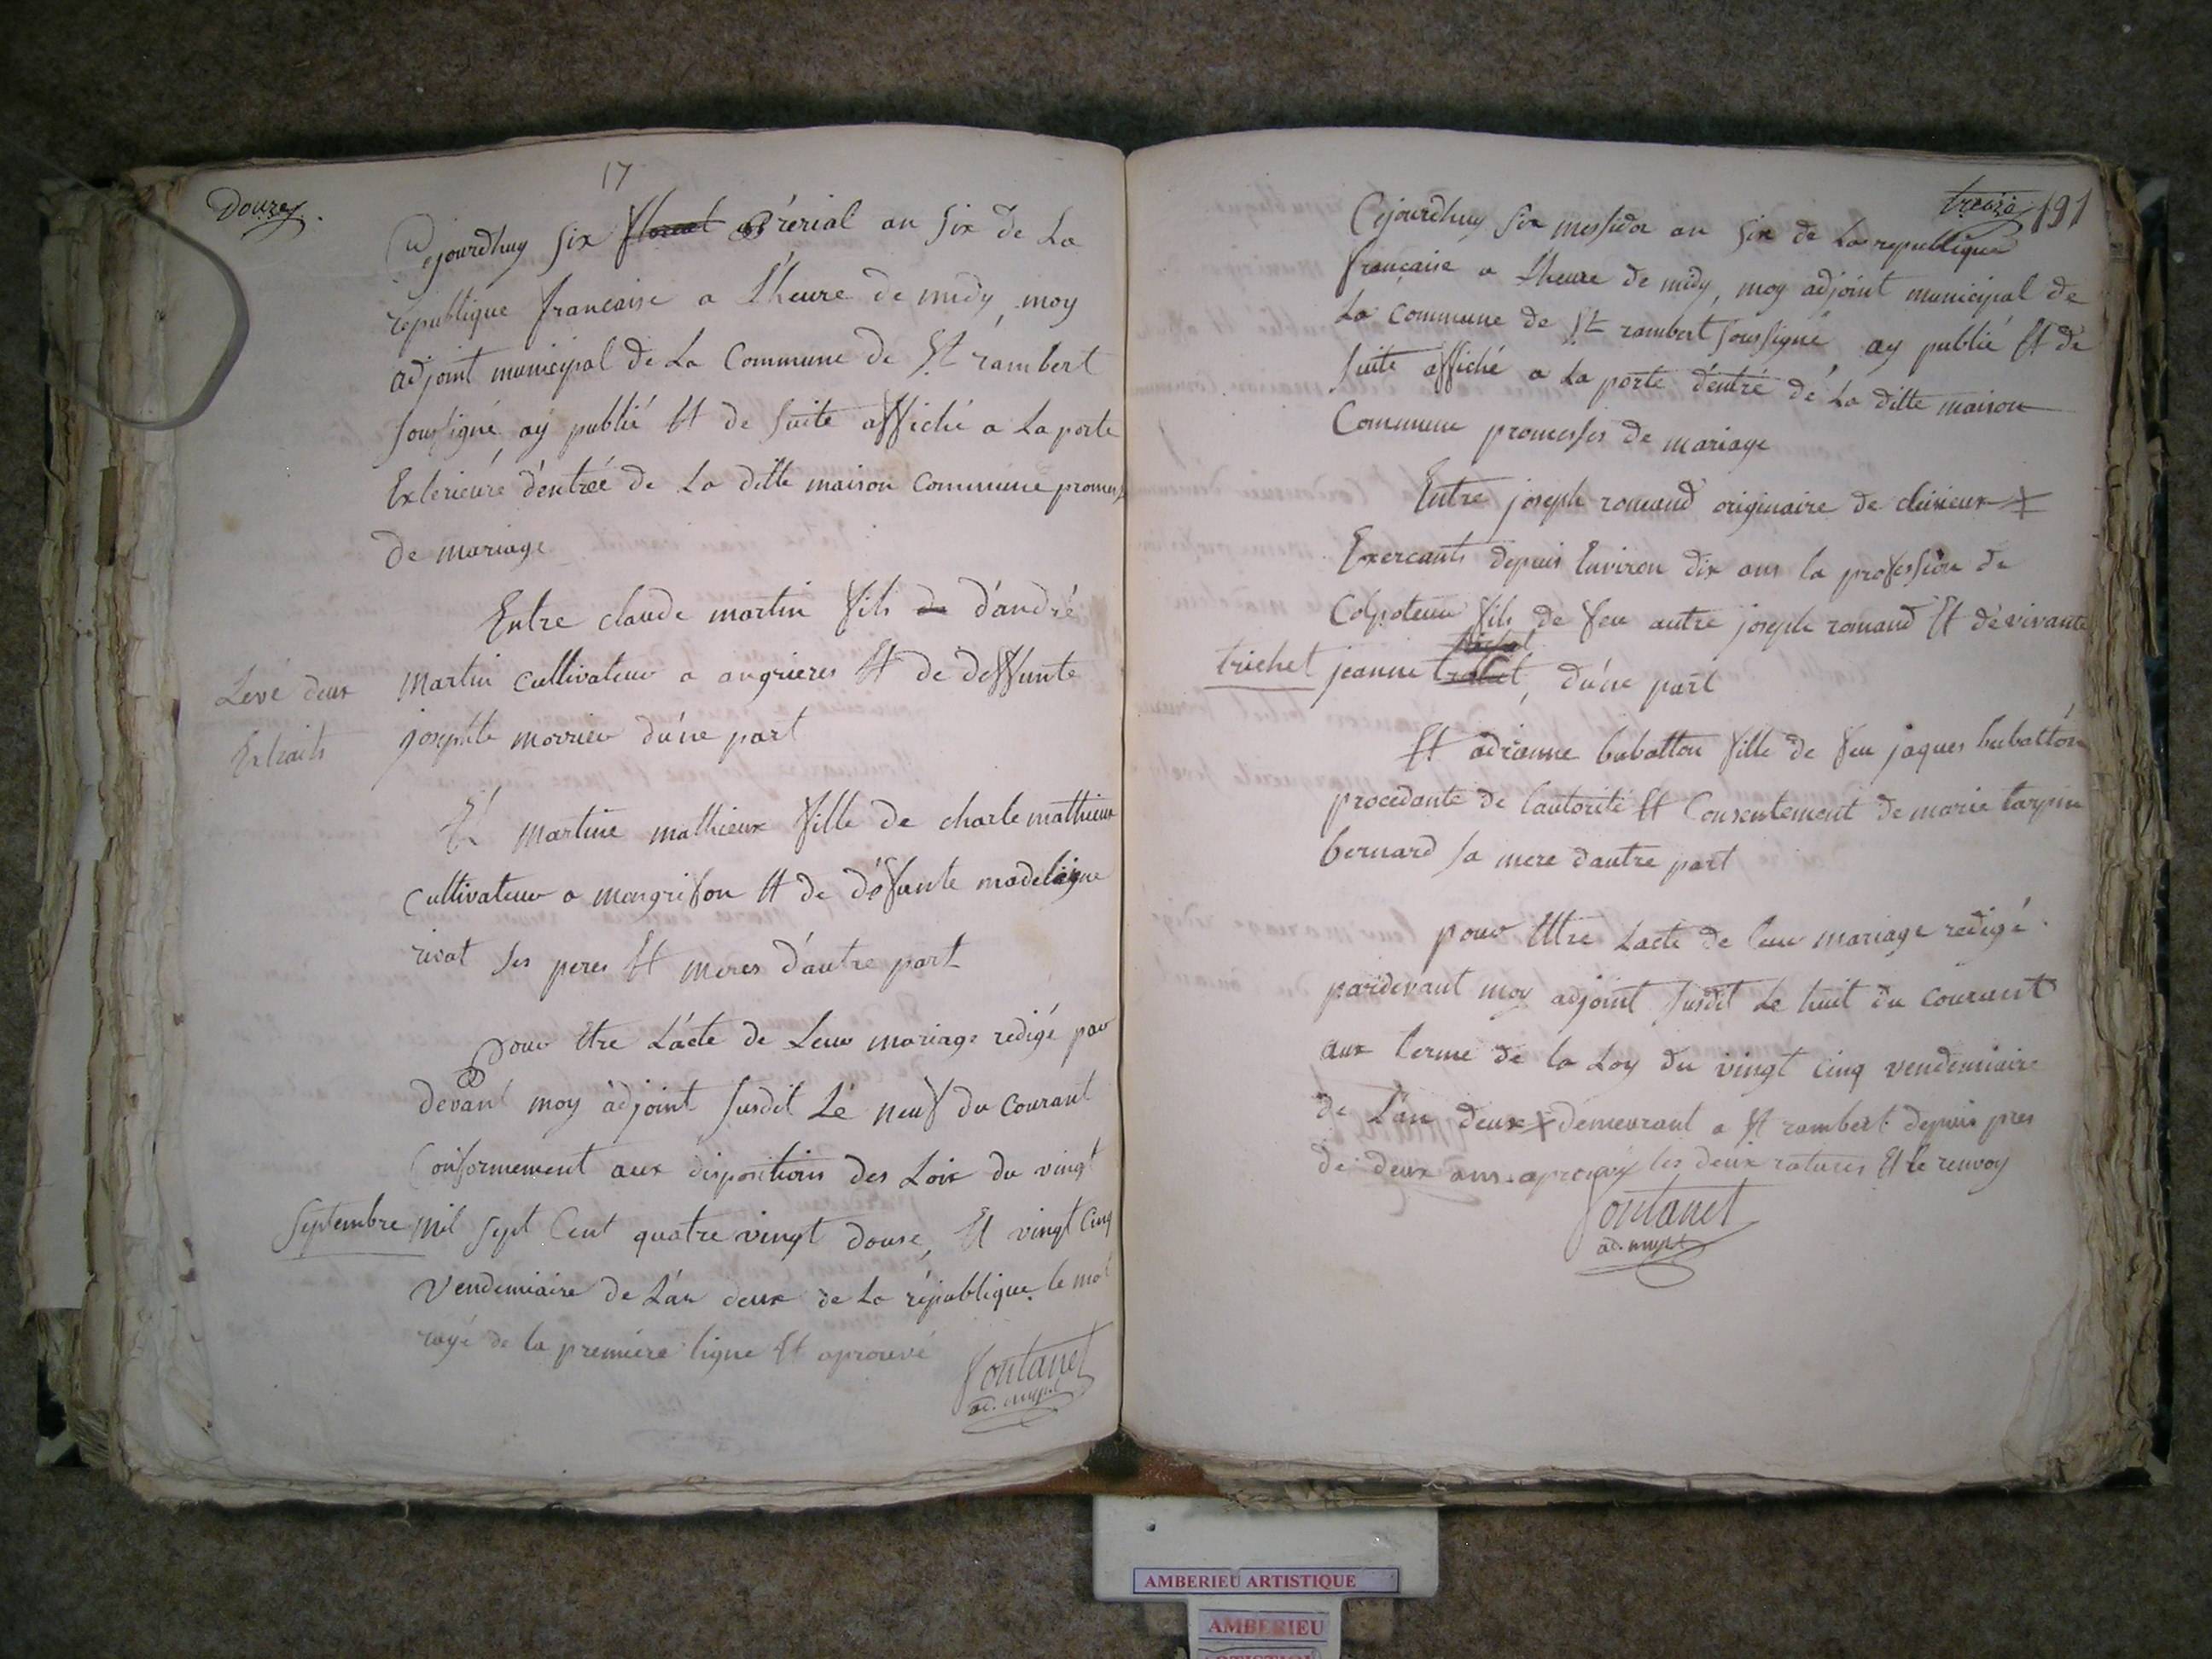 17
Douze
Cejourdhuy six floreal prérial an six de La
republique francaise a L'heure de midy, moy
adjoint municipal de La Commune de St rambert
soussigné, ay publié Et de suite affiché a La porte
Extérieure d'entrée de La ditte maison Commune promess
de mariage
Entre claude martin fils de d'andré
Martin cultivateur a angrieres Et de deffunte
josephte morrier d'une part
Levé deux
Extraits
Et martine mathieux fille de charle mathieux
Cultivateur a mongrifon Et de défunte madelaigne
rivat ses peres Et meres d'autre part
pour Etre L'acte de Leur mariage redigé par
devant moy adjoint susdit Le neuf du courant
Conformement aux dispositions des Loix du vingt
Septembre mil sept Cent quatre vingt douse, Et vingt cinq
Vendemiaire de L'an deux de La république. le mot
rayé de la première ligne Et aprouvé
fontanet
ad. mupal
treize 191
Cejourdhuy six messidor an six de La republique
française a L'heure de midy, moy adjoint municipal de
La Commune de St rambert soussigné ay publié Et de
suite affiché a La porte d'entré de La ditte maison
Commune promesses de mariage
Entre joseph romand originaire de
Exercants depuis Environ dix ans la profession de
Colpoteur fils de feu autre joseph romand Et de vivante
trichet jeanne d'une part
Et adrianne bubatton fille de feu jaques bubatton
procedante de l'autorité Et Consentement de marie tarpin
bernard sa mere d'autre part
pour Etre L'acte de leur mariage redigé
pardevant moy adjoint susdit Le huit du courant
aux terme de la Loy du vingt cinq vendemiaire
de L'an deux + demeurant a St rambert depuis pres
de deux ans. aprouvé les deux ratures Et le renvoy
fontanet
ad. mupal
AMBERIEU ARTISTIQUE
AMBERIEU
ARTISTIQUE